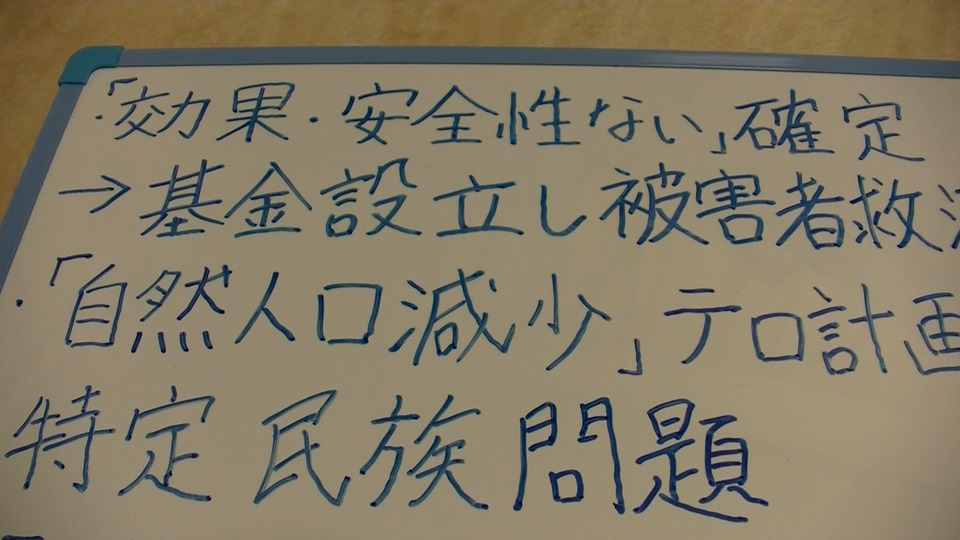 ・「効果・安全性ない」確定
→基金設立し被害者救
・「自然人口減少」テロ計画
特定民族問題